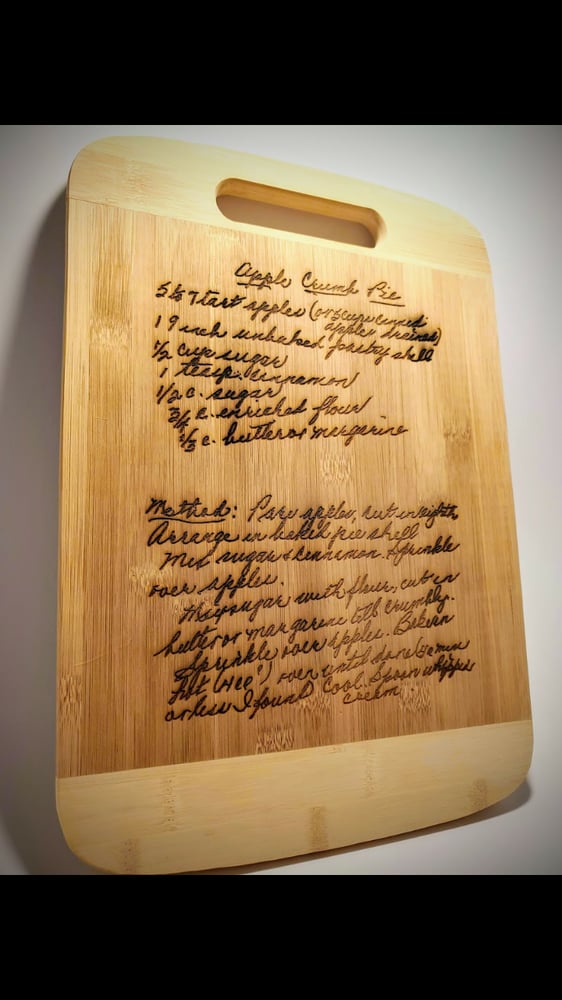 Apple Crumb Pie
5 to 7 tart apples (or 3 cups canned
apples drained)
1 9 inch unbaked pastry shell
1/2 cup sugar
1 teasp. cinnamon
1/2 c. sugar
3/4 c. enriched flour
1/3 c. butter or margarine
Method: Pare apples, cut in eighths,
Arrange in baked pie shell
Mix sugar & cinnamon. Sprinkle
over apples.
Mix sugar with flour, cut in
butter or margarine till crumbly.
Sprinkle over apples. Bake in
hot (400°) oven until done (40 min
or less I found) Cool. Spoon whipped
cream